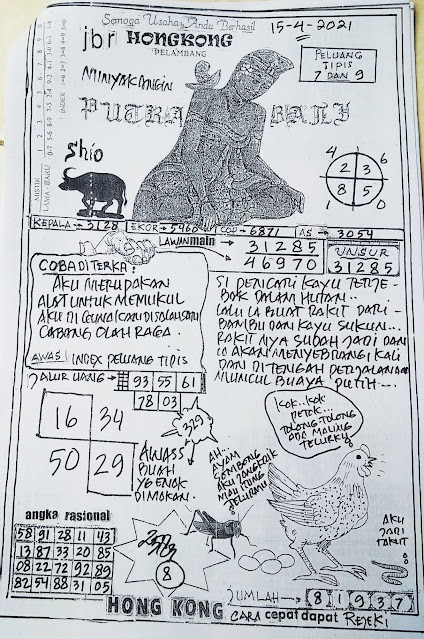 Semoga Usaha Anda Berhasil
15-4-2021
jbr HONGKONG
PELAMBANG
PELUANG
TIPIS
7 DAN 9
MINYAK ANGIN
PUTRA BALI
Shio
4 6
2 3
8 5
1 0
KEPALA → 3128 EKOR → 5460 COP → 6871 AS → 3054
LAWAN main → 31285
→ 46970
UNSUR
31285
COBA DITERKA:
AKU MERUPAKAN
ALAT UNTUK MEMUKUL
AKU DIGUNAKAN DISALAH SATU
CABANG OLAH RAGA.
AWAS! INDEX PELUANG TIPIS
SI PENCARI KAYU TERJE-
BAK DALAM HUTAN..
LALU IA BUAT RAKIT DARI -
BAMBU DAN KAYU SUKUN...
RAKIT NYA SUDAH JADI DAN
IA AKAN MENYEBRANGI KALI
DAN DITENGAH PERJALANAN
MUNCUL BUAYA PUTIH---
JALUR UANG → 93 55 61
78 03
329
16 34
50 29
AWASS
BUAH
YG ENAK
DIMAKAN.
KOK..KOK
PETOK...
TOLONG TOLONG
ADA MALING
TELURKU
AH..
AYAM
SOMBONG
AKU JANGKRIK
MAU ITUNG
TELURMU
AKU
JARI
TANGIT
angka rasional
58 91 28 11 43
13 87 33 20 85
08 22 72 92 89
82 54 88 31 05
8
JUMLAH → 8 1 9 3 7
HONG KONG CARA cepat dapat REJEKI